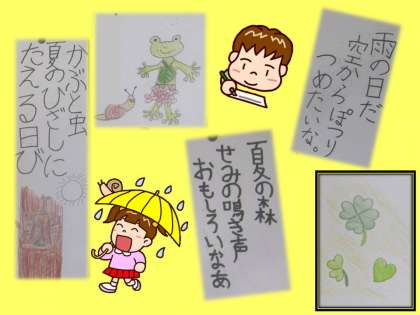 雨の日だ
空からぽつり
つめたいな。
夏の森
せみの鳴き声
おもしろいなあ
かぶと虫
夏のひざしに
たえる日び